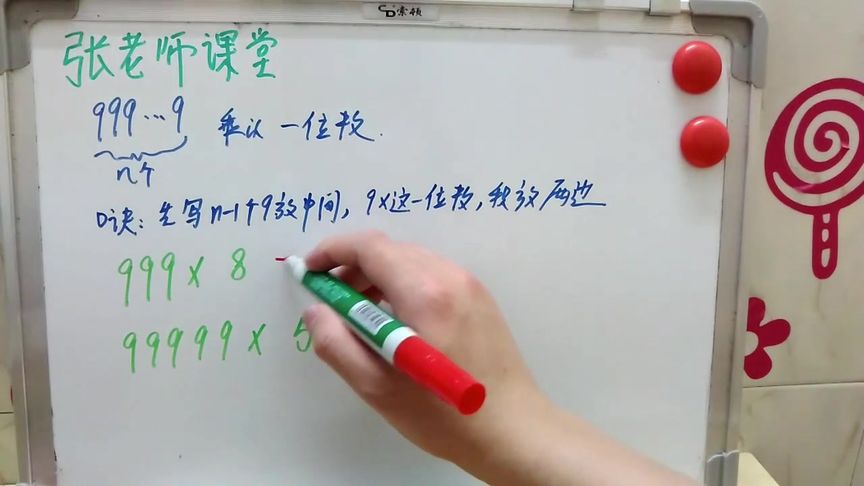 CD 索顿
张老师课堂
999…9 乘以 一位数.
n个
口诀: 先写n-1个9放中间, 9×这一位数, 我放两边
999× 8
99999× 5